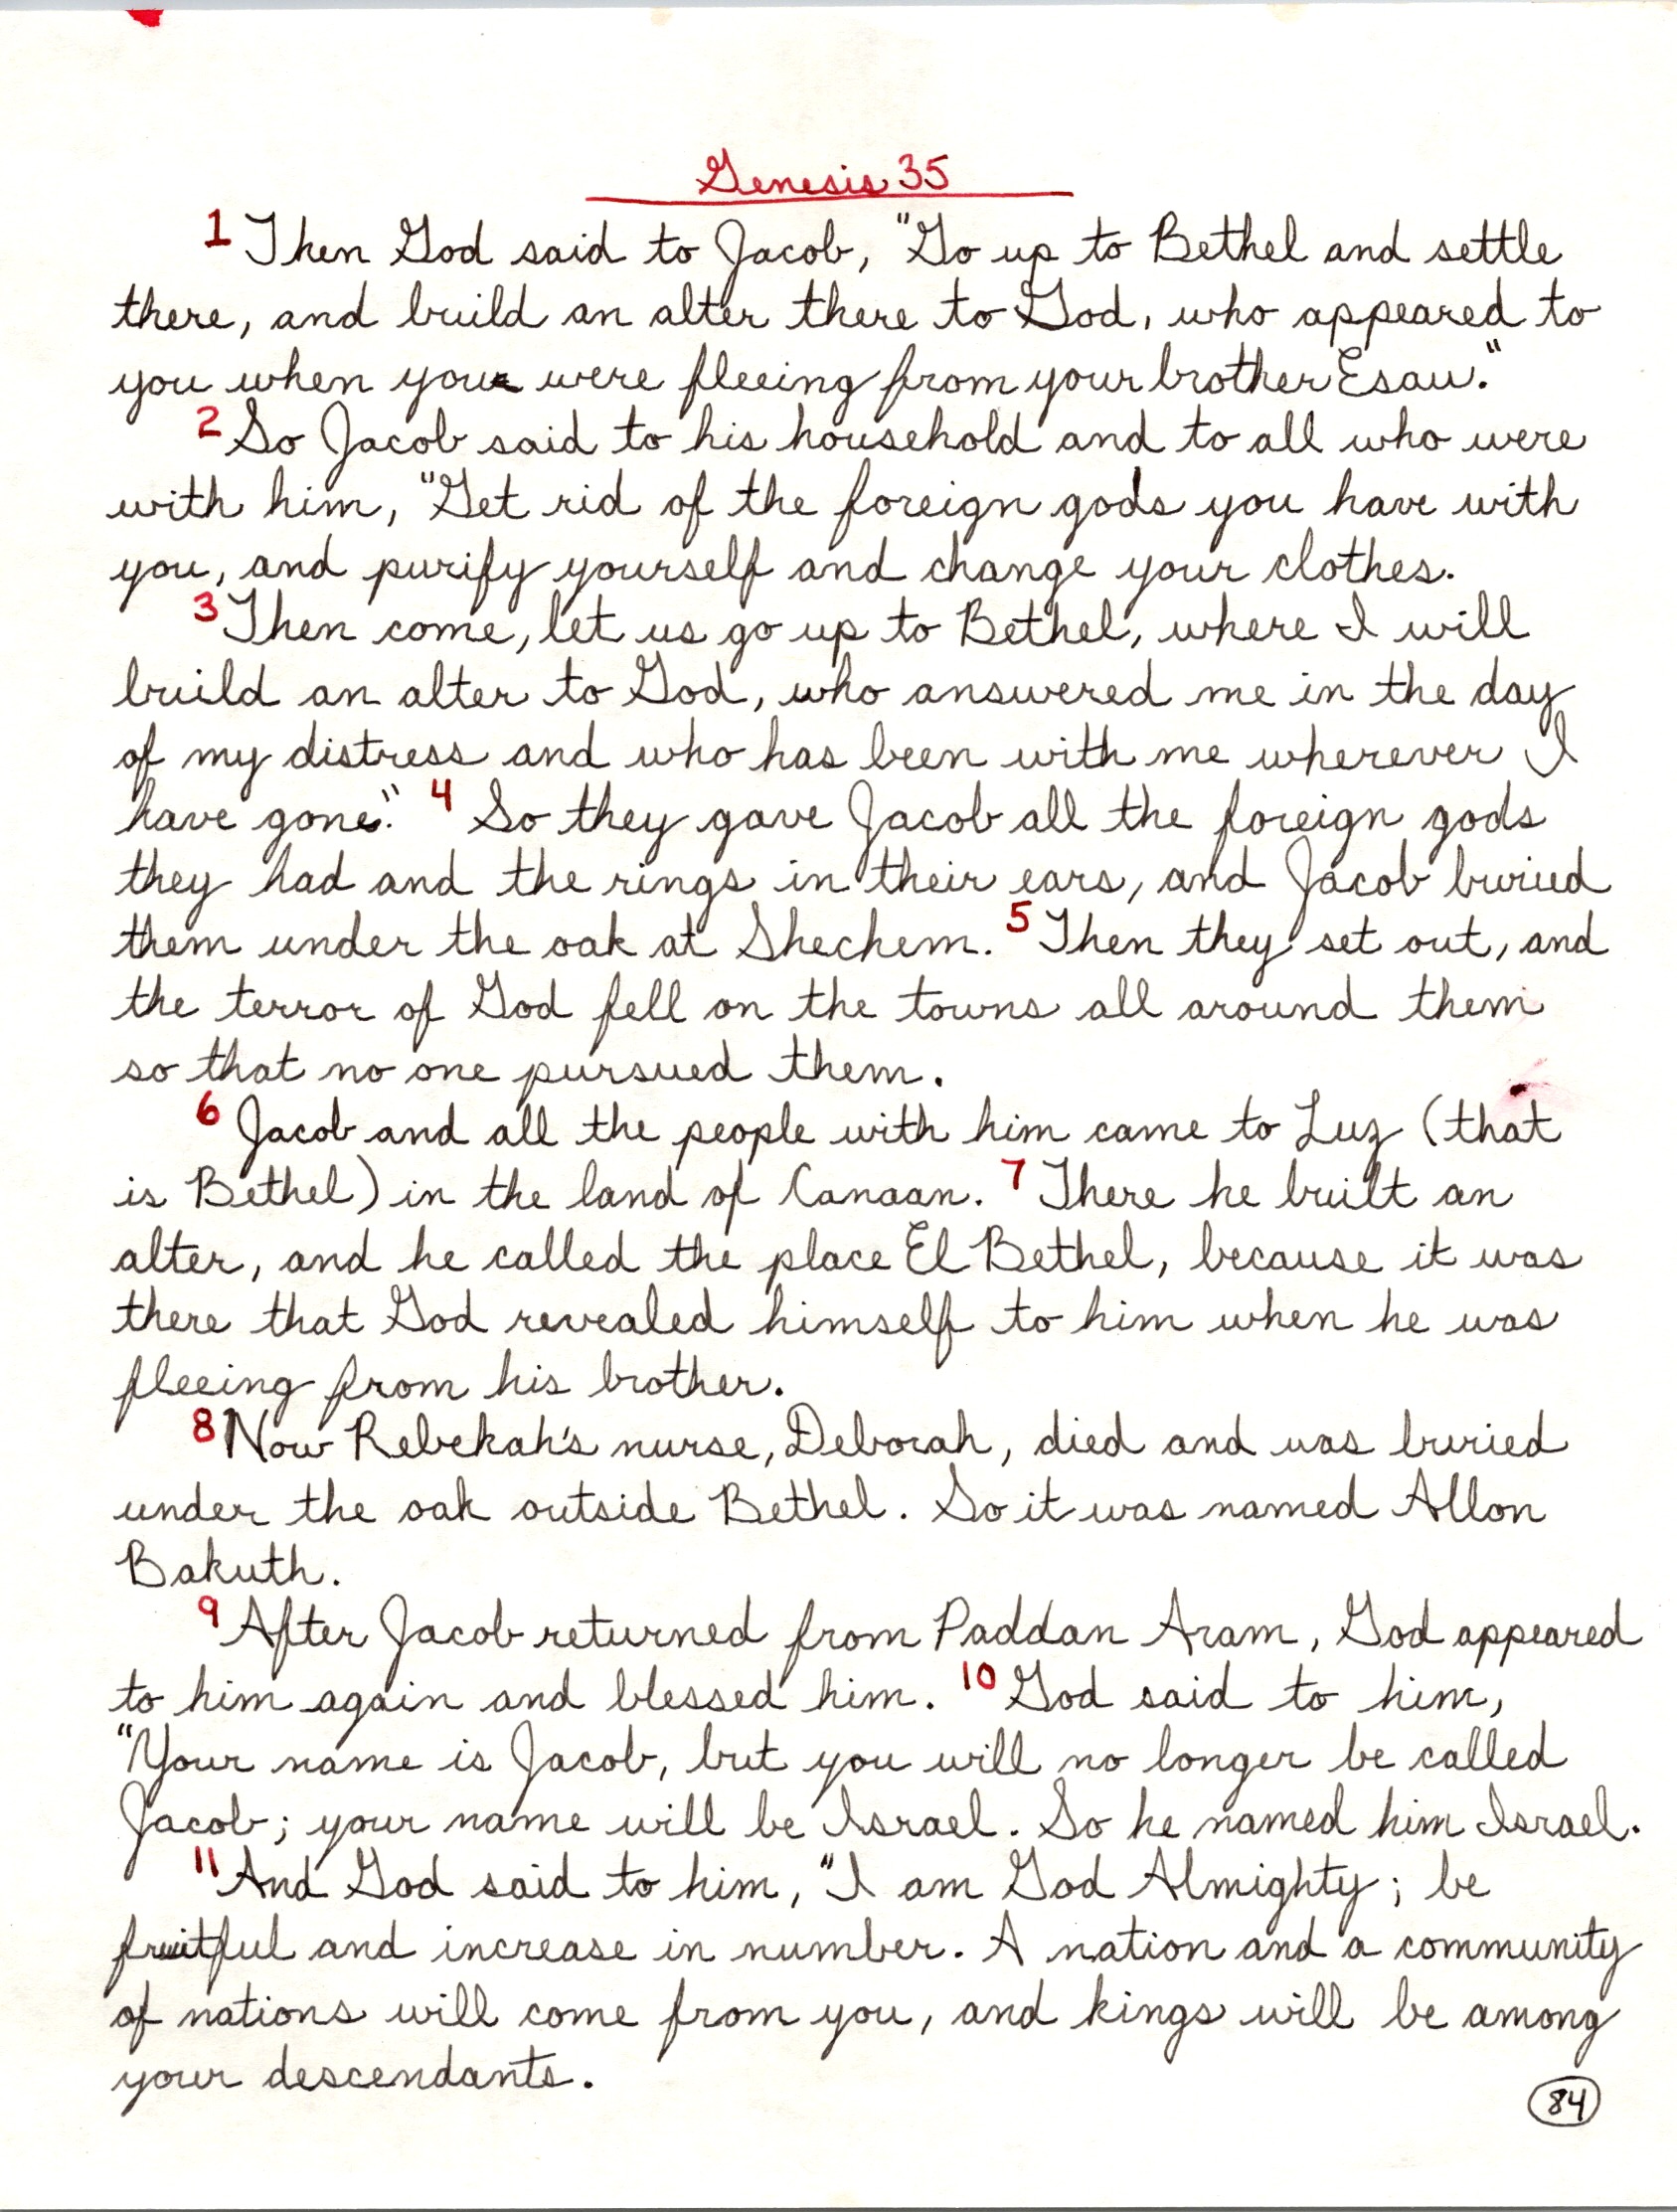 Genesis 35
1 Then God said to Jacob, "Go up to Bethel and settle
there, and build an alter there to God, who appeared to
you when you were fleeing from your brother Esau."
2 So Jacob said to his household and to all who were
with him, "Get rid of the foreign gods you have with
you, and purify yourself and change your clothes.
3 Then come, let us go up to Bethel, where I will
build an alter to God, who answered me in the day
of my distress and who has been with me wherever I
have gone." 4 So they gave Jacob all the foreign gods
they had and the rings in their ears, and Jacob buried
them under the oak at Shechem. 5 Then they set out, and
the terror of God fell on the towns all around them
so that no one pursued them.
6 Jacob and all the people with him came to Luz (that
is Bethel) in the land of Canaan. 7 There he built an
alter, and he called the place El Bethel, because it was
there that God revealed himself to him when he was
fleeing from his brother.
8 Now Rebekah's nurse, Deborah, died and was buried
under the oak outside Bethel. So it was named Allon
Bakuth.
9 After Jacob returned from Paddan Aram, God appeared
to him again and blessed him. 10 God said to him,
"Your name is Jacob, but you will no longer be called
Jacob; your name will be Israel. So he named him Israel.
11 And God said to him, "I am God Almighty; be
fruitful and increase in number. A nation and a community
of nations will come from you, and kings will be among
your descendants.
84